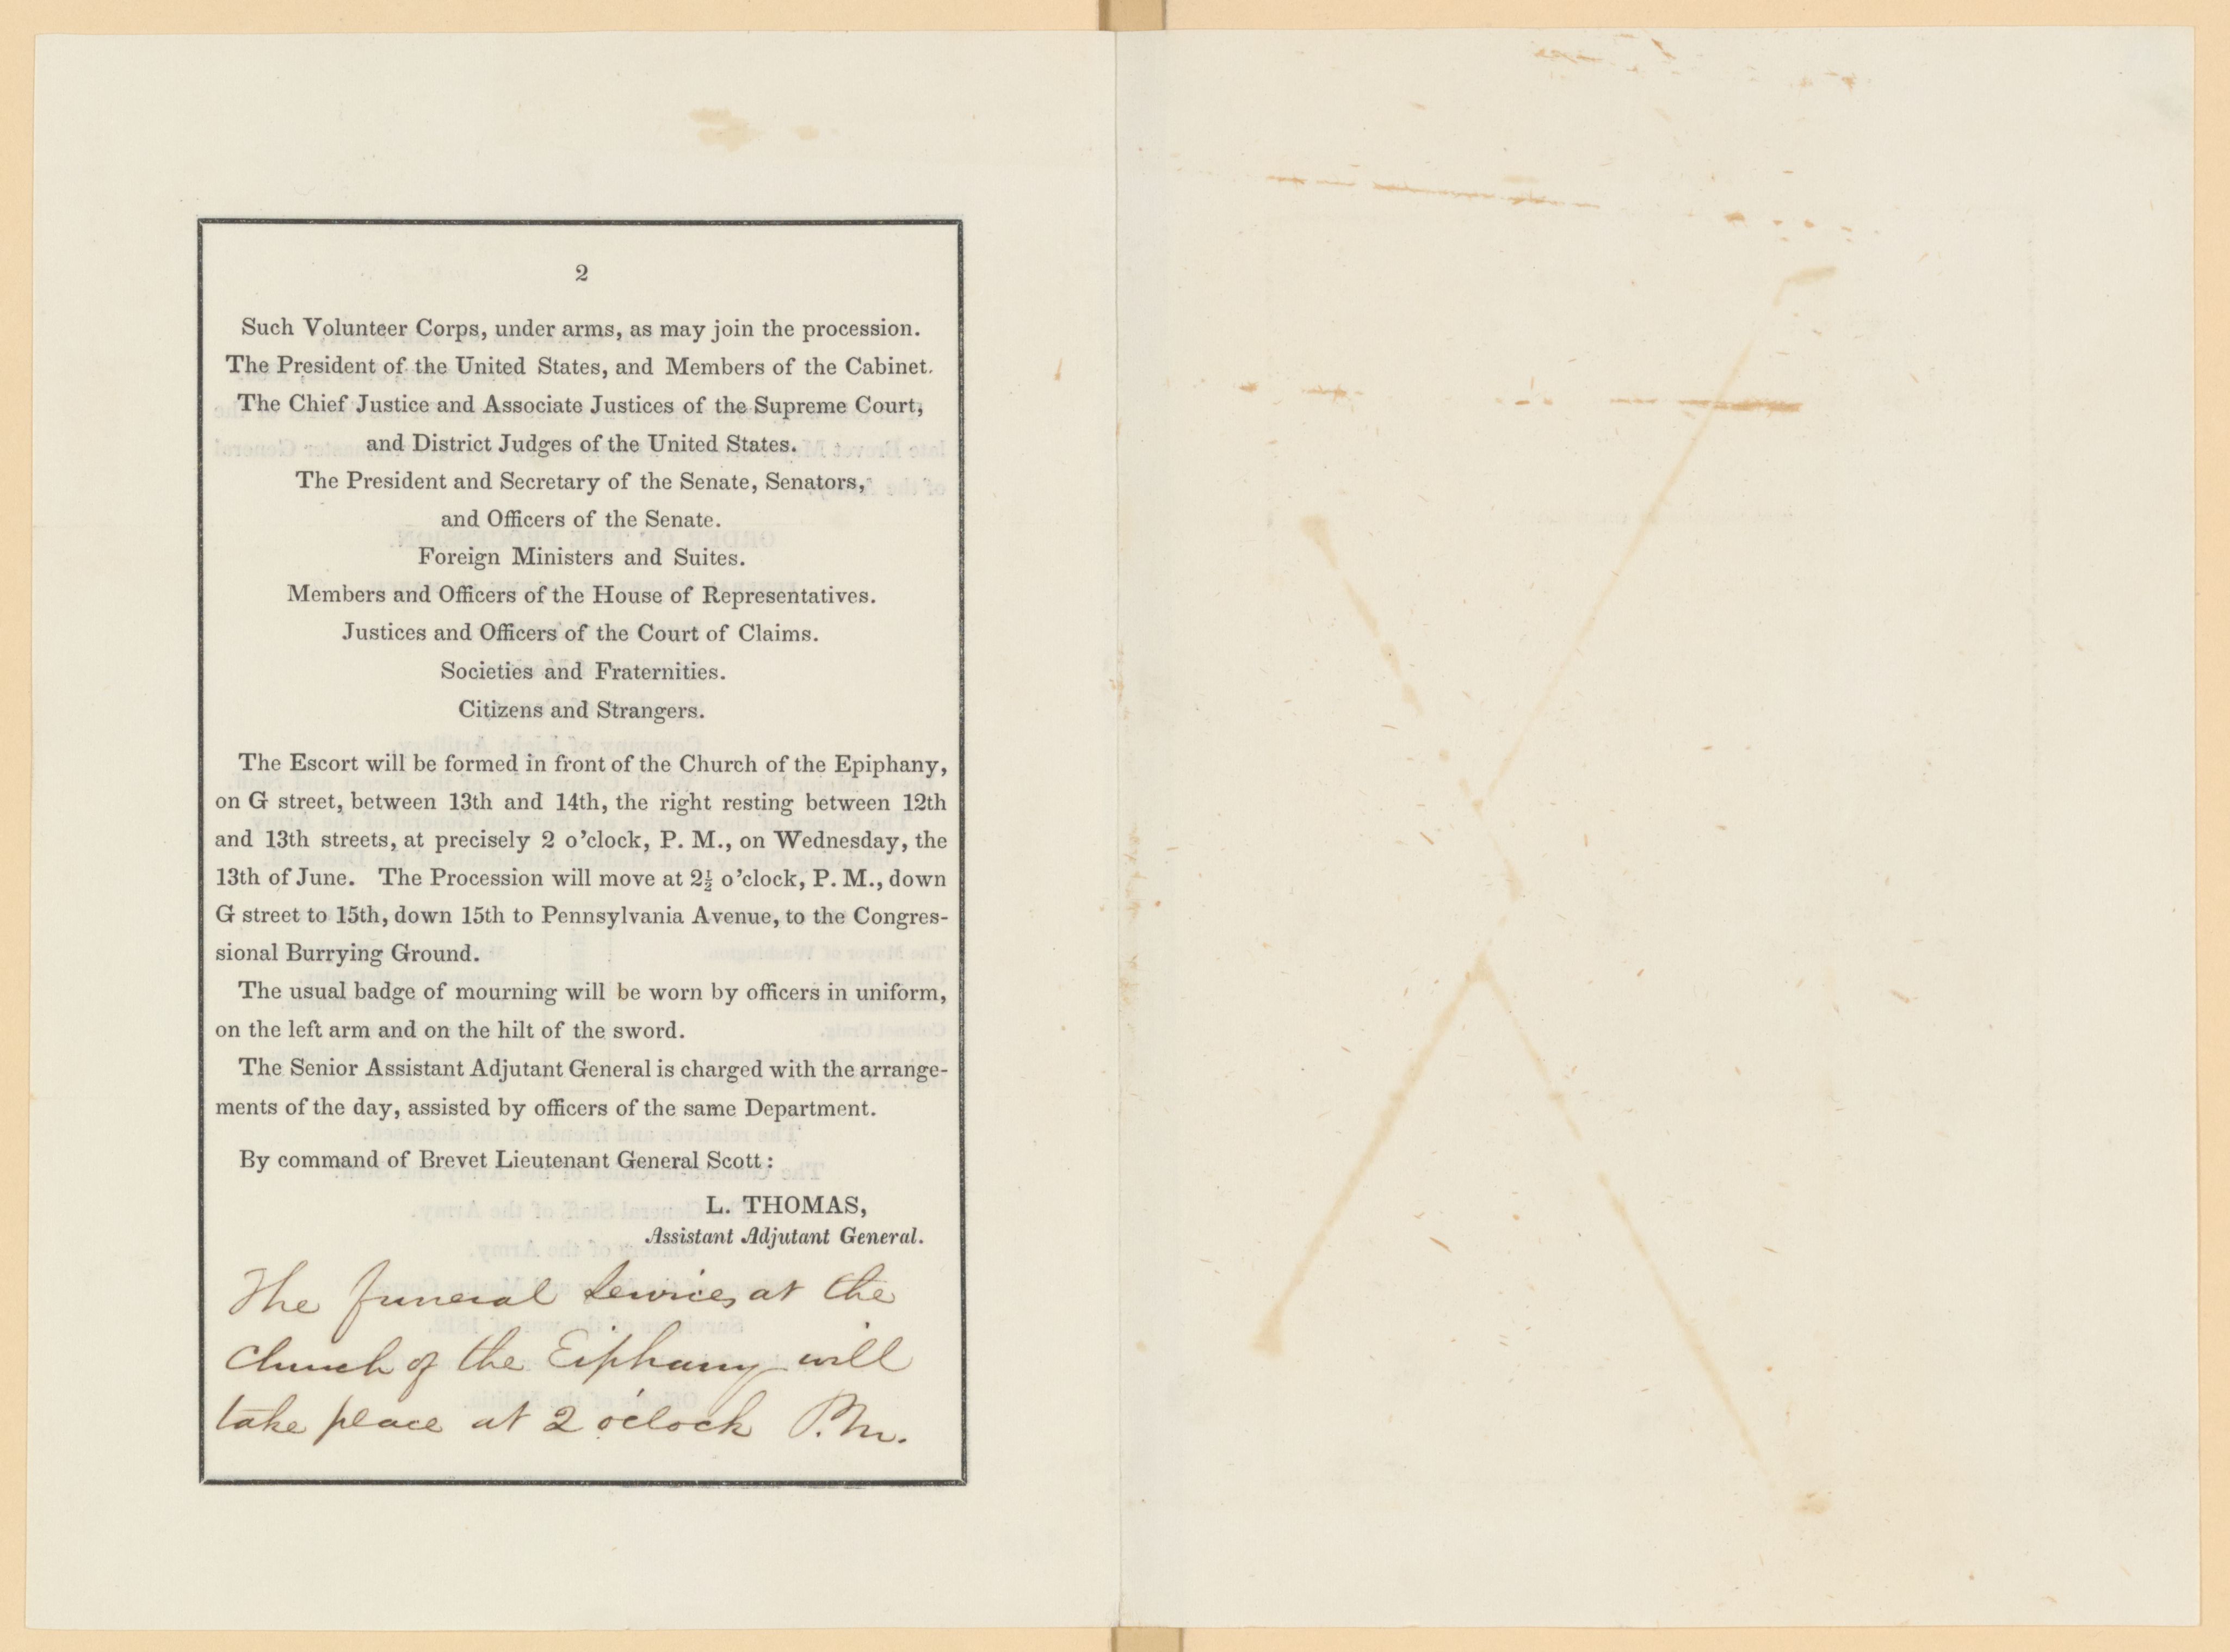 2
Such Volunteer Corps, under arms, as may join the procession.
The President of the United States, and Members of the Cabinet.
The Chief Justice and Associate Justices of the Supreme Court,
and District Judges of the United States.
The President and Secretary of the Senate, Senators,
and Officers of the Senate.
Foreign Ministers and Suites.
Members and Officers of the House of Representatives.
Justices and Officers of the Court of Claims.
Societies and Fraternities.
Citizens and Strangers.
The Escort will be formed in front of the Church of the Epiphany,
on G street, between 13th and 14th, the right resting between 12th
and 13th streets, at precisely 2 o'clock, P. M., on Wednesday, the
13th of June. The Procession will move at 2½ o'clock, P. M., down
G street to 15th, down 15th to Pennsylvania Avenue, to the Congres-
sional Burrying Ground.
The usual badge of mourning will be worn by officers in uniform,
on the left arm and on the hilt of the sword.
The Senior Assistant Adjutant General is charged with the arrange-
ments of the day, assisted by officers of the same Department.
By command of Brevet Lieutenant General Scott:
L. THOMAS,
Assistant Adjutant General.
The funeral services at the
Church of the Eiphany will
take place at 2 o'clock P.M.